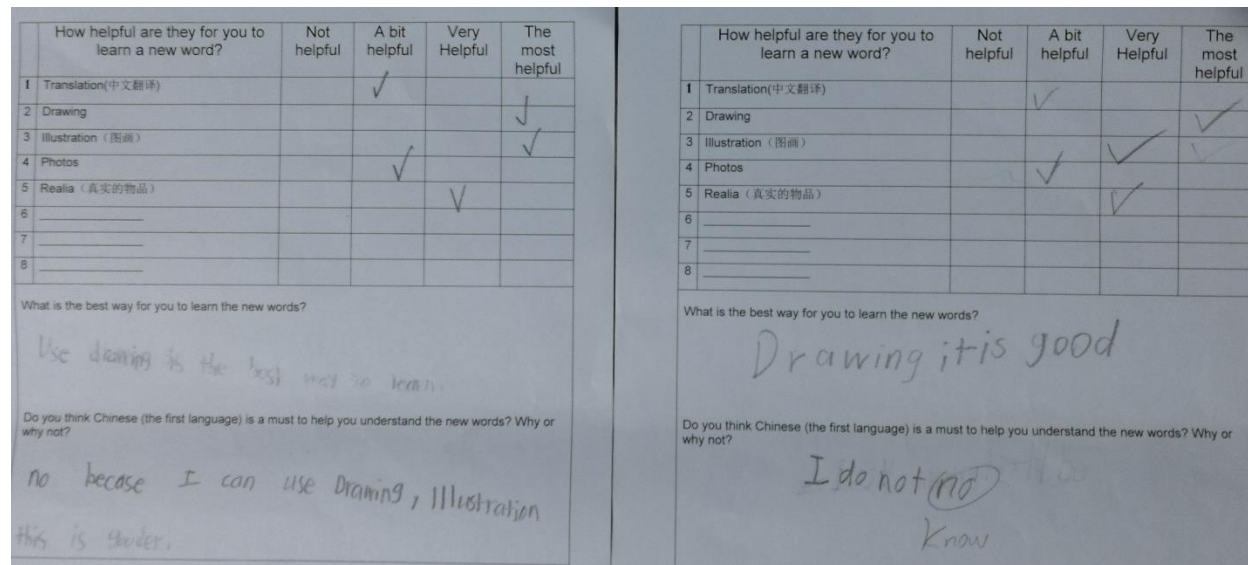 How helpful are they for you to learn a new word? Not helpful A bit helpful Very Helpful The most helpful
1 Translation(中文翻译) ✓
2 Drawing ✓
3 Illustration（图画） ✓
4 Photos ✓
5 Realia（真实的物品） ✓
6
7
8
What is the best way for you to learn the new words?
Use drawing is the best way to learn.
Do you think Chinese (the first language) is a must to help you understand the new words? Why or
why not?
no becase I can use Drawing, Illustration
this is
How helpful are they for you to learn a new word? Not helpful A bit helpful Very Helpful The most helpful
1 Translation(中文翻译) ✓
2 Drawing ✓
3 Illustration（图画） ✓
4 Photos ✓
5 Realia（真实的物品） ✓
6
7
8
What is the best way for you to learn the new words?
Drawing it is good
Do you think Chinese (the first language) is a must to help you understand the new words? Why or
why not?
I do not no
Know